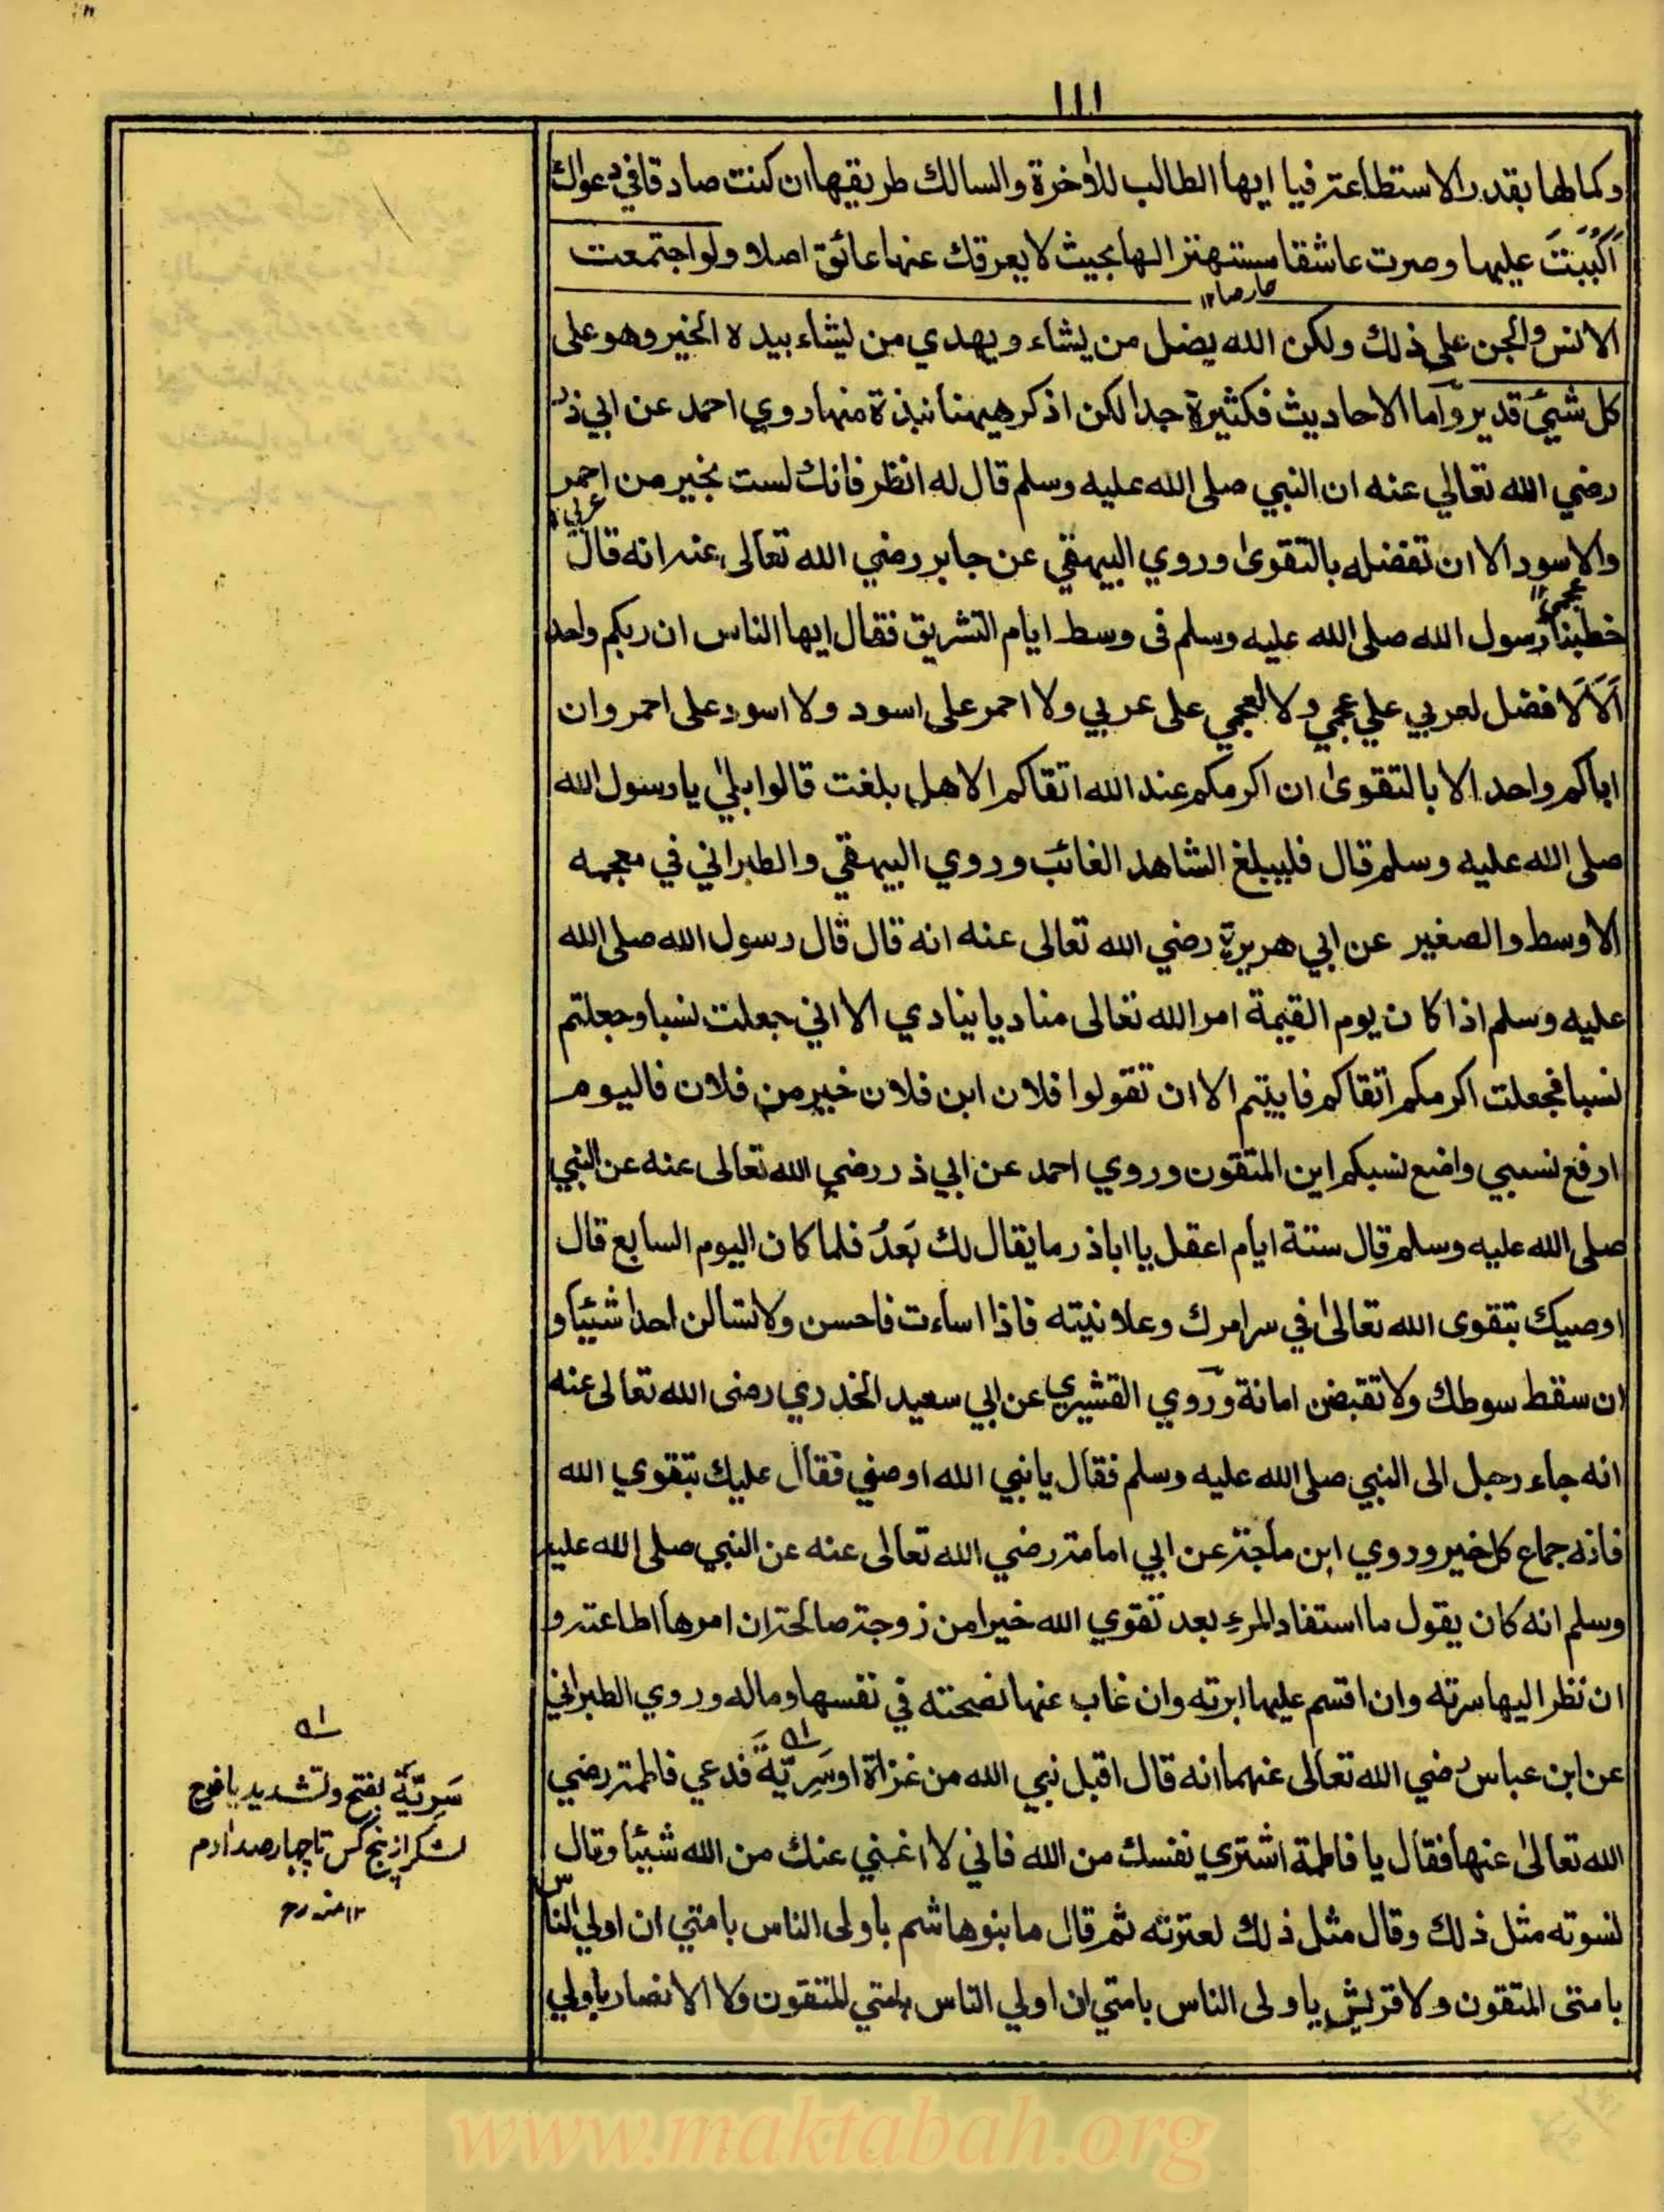 ١١١
وكمالها بقدر الاستطاعة فيا ايها الطالب للاخرة والسالك طريقها ان كنت صادقا في دعواك
اَكْبَبْتَ عليها وصرت عاشقا مستهتزا لها بحيث لا يعرقك عنها عائق اصلا ولو اجتمعت
حارصا ١٢
الانس والجن على ذلك ولكن الله يضل من يشاء ويهدي من يشاء بيده الخير وهو على
كل شيئ قدير وآما الاحاديث فكثيرة جدا لكن اذكر هيهنا نبذة منها روي احمد عن ابي ذر
رضي الله تعالي عنه ان النبي صلى الله عليه وسلم قال له انظر فانك لست بخير من احمر
عربي ١٢
والاسود الا ان تفضله بالتقوىٰ وروي البيهقي عن جابر رضي الله تعالى عنه انه قال
عجمي ١٢
خطبنا رسول الله صلى الله عليه وسلم فى وسط ايام التشريق فقال ايها الناس ان ربكم واحد
اَلَا لَا فضل لعربي علي عجمي ولا لعجمي على عربي ولا احمر على اسود ولا اسود على احمر وان
اباكم واحد الا بالتقوىٰ ان اكرمكم عند الله اتقاكم الا هل بلغت قالوا بلىٰ يا رسول الله
صلى الله عليه وسلم قال فليبلغ الشاهد الغائب وروي البيهقي والطبراني في معجمه
الاوسط والصغير عن ابي هريرة رضي الله تعالى عنه انه قال قال رسول الله صلى الله
عليه وسلم اذا كان يوم القيمة امر الله تعالى مناديا ينادي الا اني جعلت نسبا وجعلتم
نسبا فجعلت اكرمكم اتقاكم فابيتم الا ان تقولوا فلان ابن فلان خير من فلان فاليوم
ارفع نسبي واضع نسبكم اين المتقون وروي احمد عن ابي ذر رضي الله تعالى عنه عن النبي
صلى الله عليه وسلم قال ستة ايام اعقل يا اباذر ما يقال لك بَعدُ فلما كان اليوم السابع قال
اوصيك بتقوى الله تعالىٰ في سر امرك وعلانيته فاذا اساءت فاحسن ولا تسالن احدا شيئا و
ان سقط سوطك ولا تقبض امانة وروي القشيري عن ابي سعيد الخدري رضى الله تعالى عنه
انه جاء رجل الى النبي صلى الله عليه وسلم فقال يا نبي الله اوصني فقال عليك بتقوي الله
فانه جماع كل خير وروي ابن ماجة عن ابي امامة رضي الله تعالى عنه عن النبي صلى الله عليه
وسلم انه كان يقول ما استفاد المرء بعد تقوي الله خيرا من زوجة صالحة ان امرها اطاعته و
ان نظر اليها سرته وان اقسم عليها ابرته وان غاب عنها نصحته في نفسها وماله وروي الطبراني
عن ابن عباس رضي الله تعالى عنهما انه قال اقبل نبي الله من غزاة او سَرِيَّةَ فدعي فاطمة رضي
الله تعالىٰ عنها فقال يا فاطمة اشتري نفسك من الله فاني لا اغني عنك من الله شيئا وقال
لنسوته مثل ذلك وقال مثل ذلك لعترته ثم قال ما بنو هاشم باولى الناس بامتي ان اولي الناس
بامتى المتقون ولا قريش باولى الناس بامتي ان اولي الناس بامتي المتقون ولا الانصار باولي
سَرِيَّة بفتح وتشديد يا فوج
لشكر از پنج كس تا چهار صد ادم
١٢ منه رح
www.maktabah.org